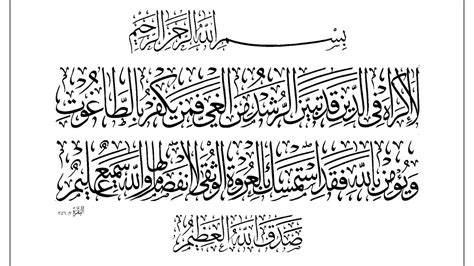 بسم الله الرحمن الرحيم
لا إكراه في الدين قد تبين الرشد من الغي فمن يكفر بالطاغوت
ويؤمن بالله فقد استمسك بالعروة الوثقى لا انفصام لها والله سميع عليم
البقرة ٢٥٦
صدق الله العظيم